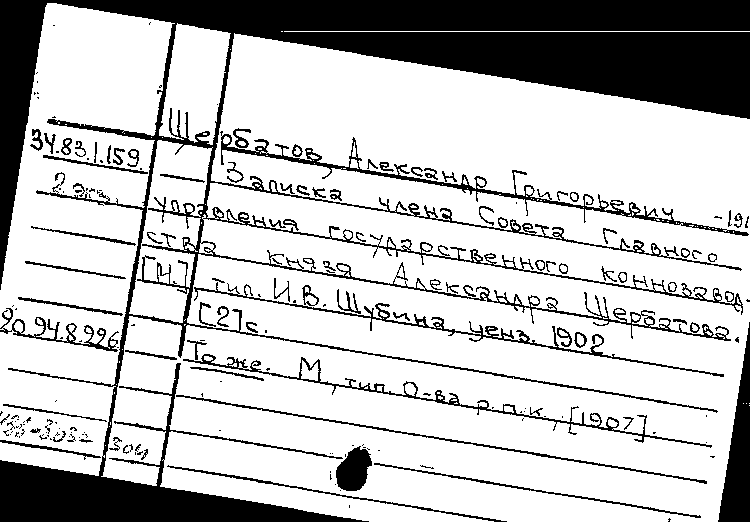 Щербатов, Александр Григорьевич -191
34.83.1.159. Записка члена Совета Главного
2 экз. управления государственного коннозавод-
ства князя Александра Щербатова.
[М.], тип. И.В. Шубина, ценз. 1902.
[2] с.
20.94.8.226 То же. М., тип. О-ва р.п.к., [1907].
304